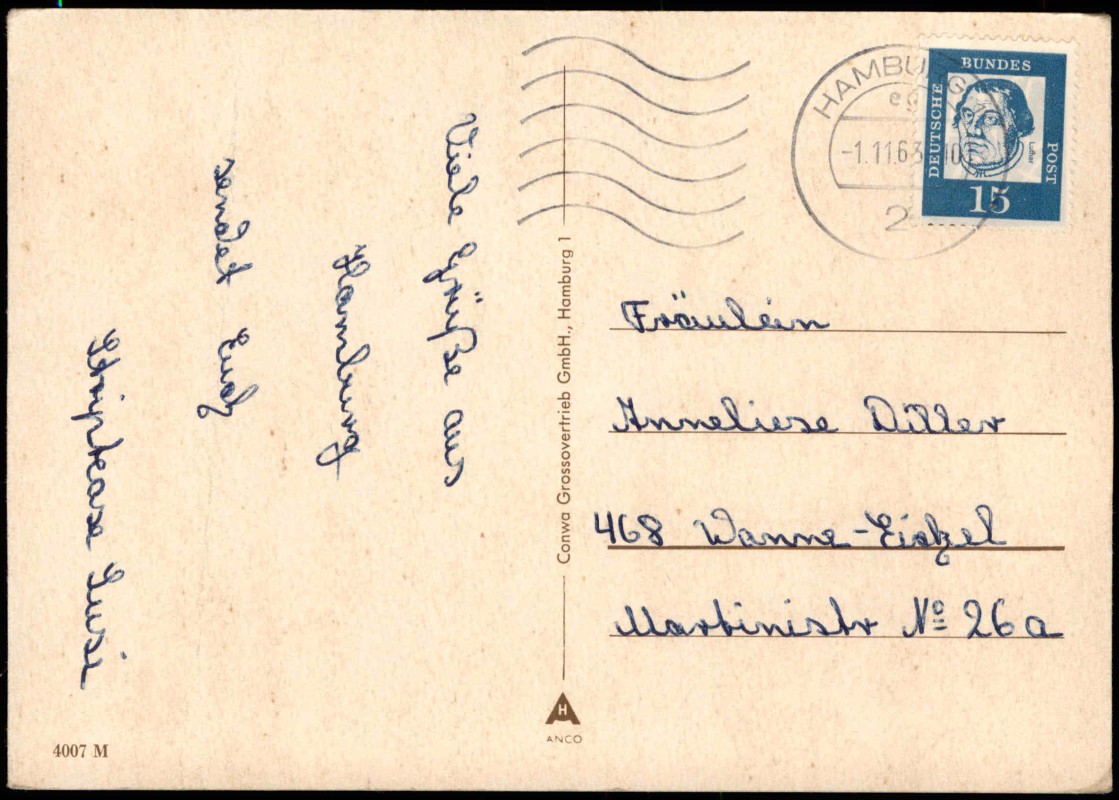 Viele Grüße aus
Hamburg
sendet Euch
Striptease Susi
4007 M
Conwa Grossovertrieb GmbH., Hamburg 1
ANCO
HAMBURG
-1.11.63
2
DEUTSCHE BUNDES POST
Luther
15
Fräulein
Anneliese Diller
468 Wanne-Eickel
Martinistr № 26a